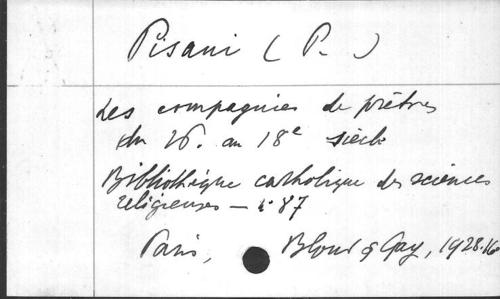 Pisani (P.)
Les compagnies de prêtres
du 16. au 18e siècle
Bibliothèque catholique des sciences
religieuses — 87
Paris, Bloud & Gay, 1928. 16°